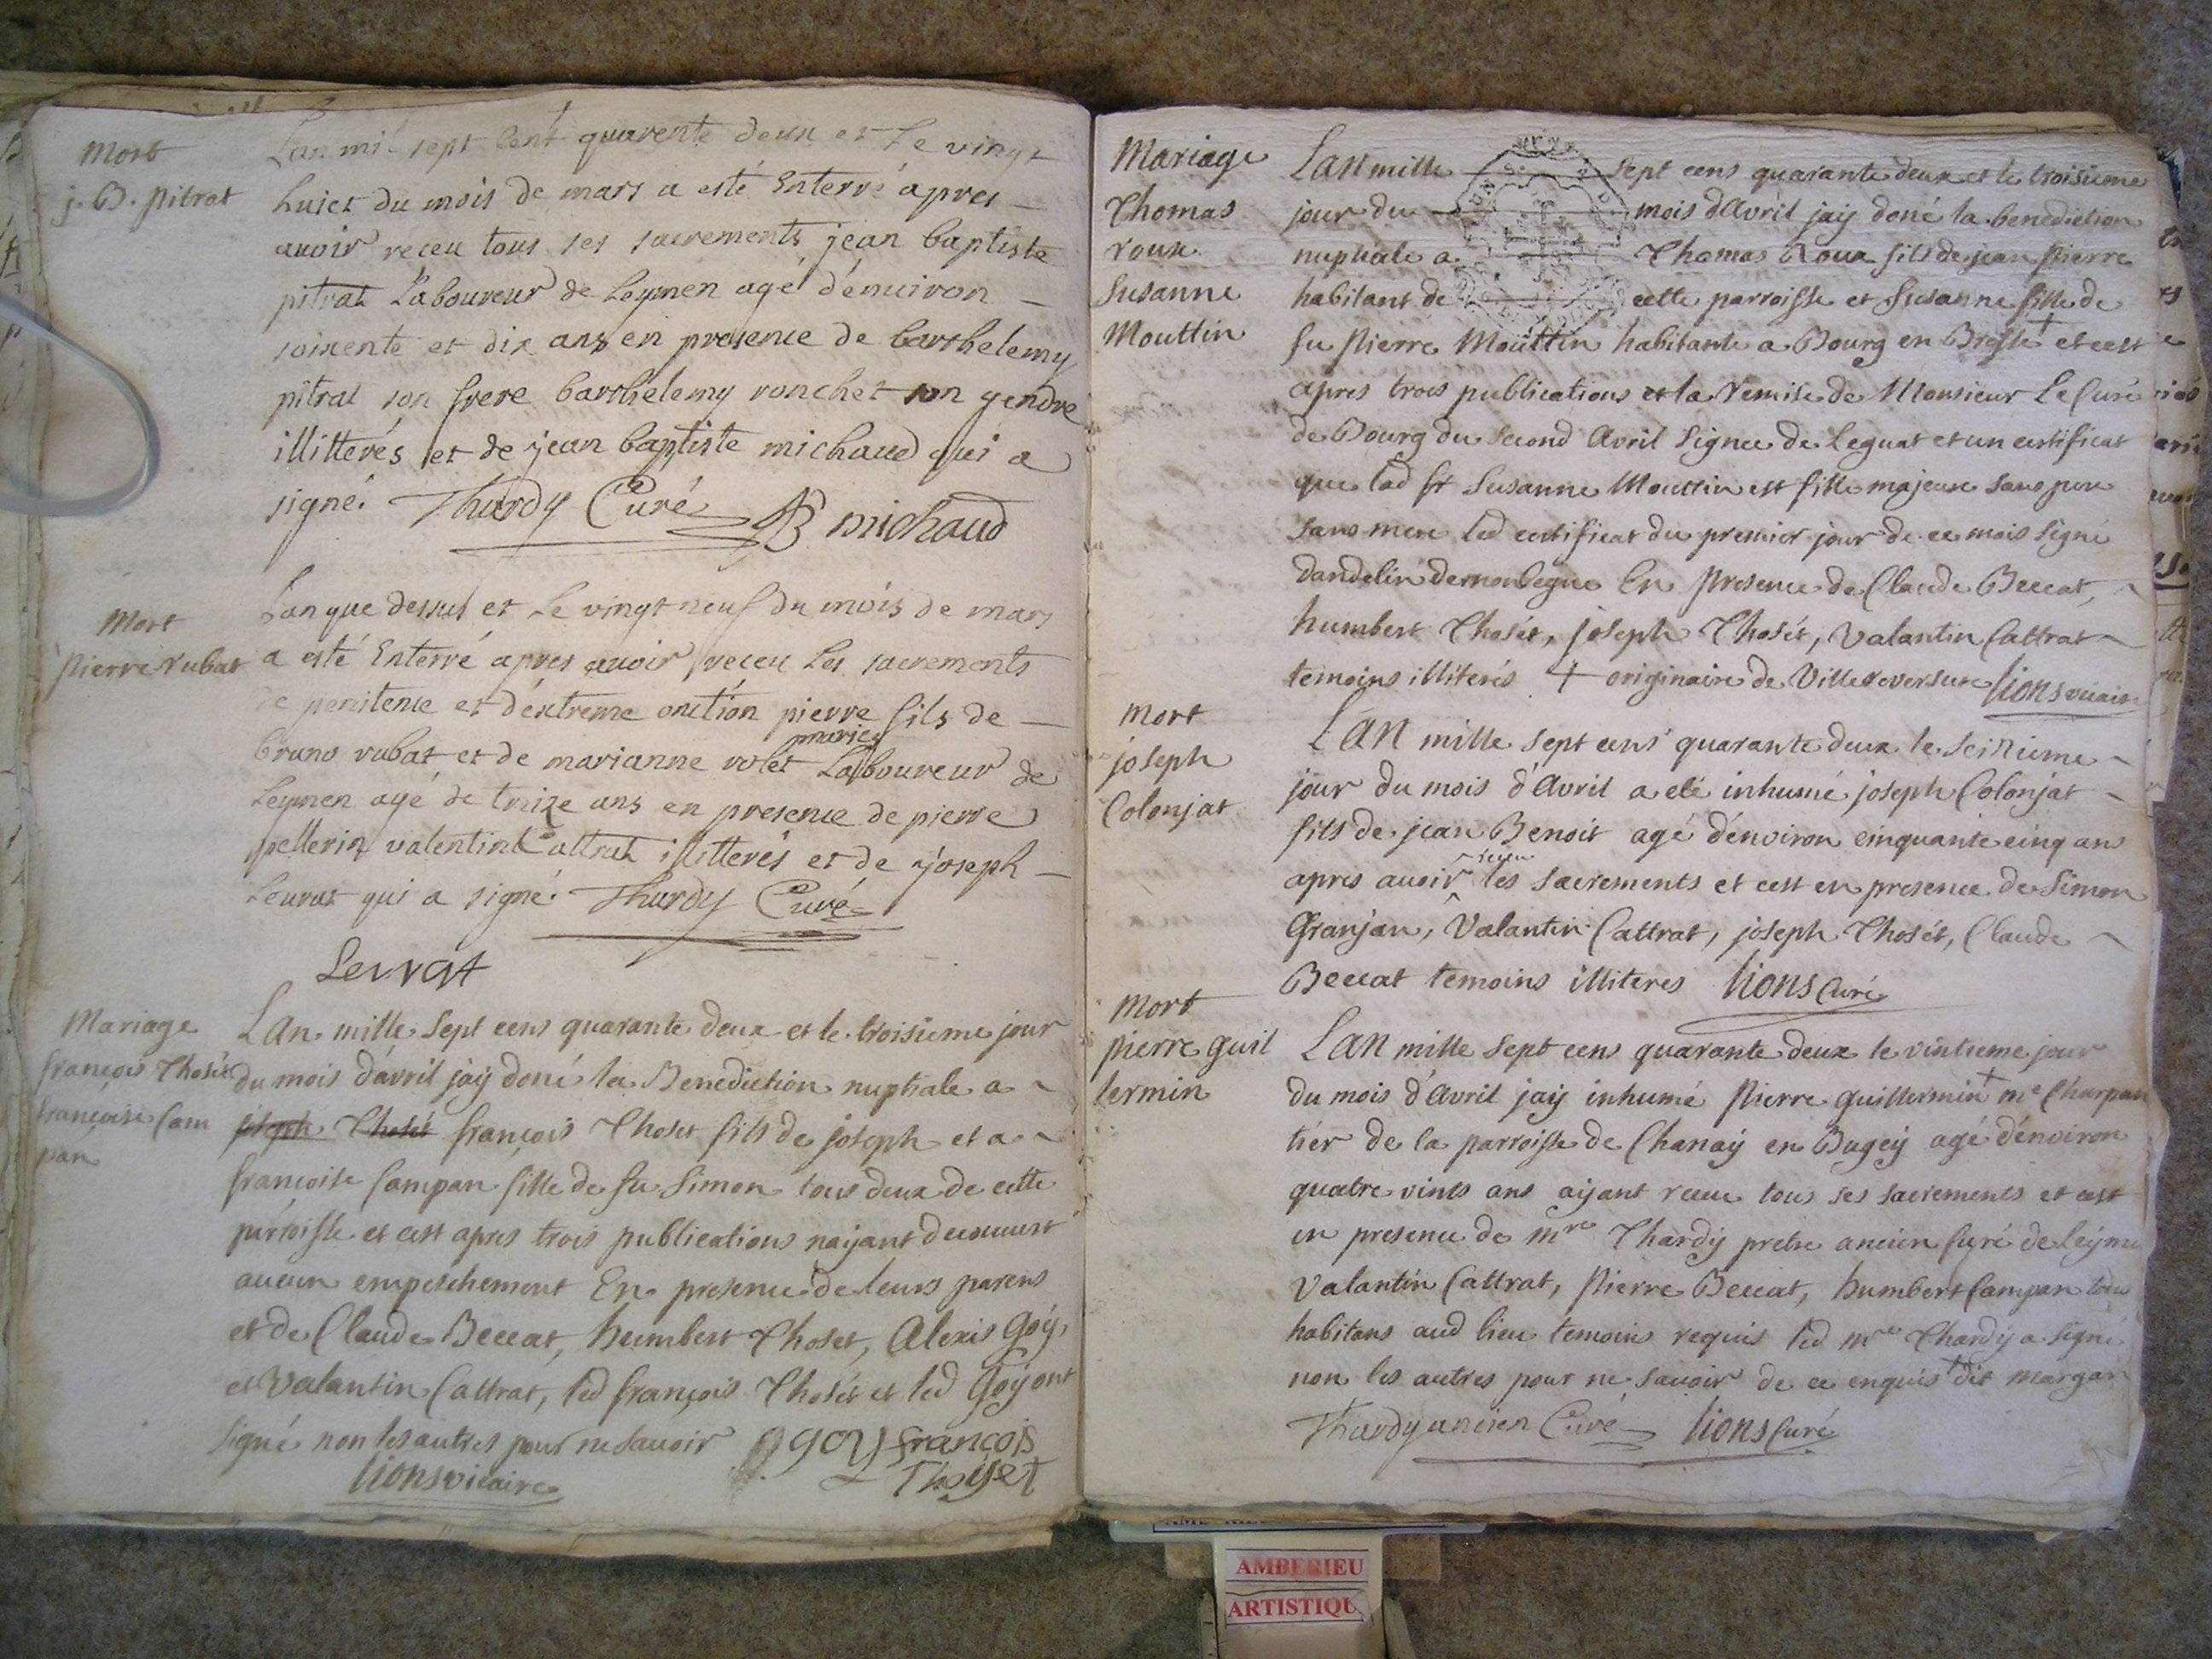 Mort
j. B. pitrat
Lan mil sept cent quarente deux et Le vingt
huict du mois de mars a esté Enterré apres
auoir receu tous ses sacrements jean baptiste
pitrat Laboureur de Leymen agé d'enuiron
soixente et dix ans en presence de barthelemy
pitrat son frere barthelemy ronchet son gendre
illitterés et de jean baptiste michaud qui a
signé. Thardy Curé JB michaud
Mort
pierre rubat
Lan que dessus et Le vingt neuf du mois de mars
a esté Enterré apres auoir receu Les sacrements
de penitence et d'extreme onction pierre fils de
bruno rubat et de marianne rolet mariés Laboureur de
Leymen agé de treize ans en presence de pierre
pellerin valentin Cattrat illitterés et de joseph
Leurat qui a signé. Thardy Curé
Levrat
Mariage
françois Thosét
françoise Cam
pan
Lan mille sept cens quarante deux et le troisieme jour
du mois d'avril jaÿ doné la Benediction nuptiale a
joseph Thosét françois Thoset fils de joseph et a
françoise Campan fille de fu Simon tous deux de cette
parroisse et cest apres trois publications naÿant decouuert
aucun empeschement En presence de leurs parens
et de Claude Beccat, humbert Thoset, Alexis Goÿ,
et Valantin Cattrat, led françois Thosét et led Goÿ ont
signé non les autres pour ne sauoir goy françois
Thoset
Lions vicaire
Mariage
Thomas
roux
Susanne
Mouttin
Lan mille sept cens quarante deux et le troisieme
jour du mois d'Avril jaÿ doné la benediction
nuptiale a Thomas Roux fils de jean pierre
habitant de cette parroisse et Susanne fille de
fu pierre Mouttin habitante a Bourg en Bresse + et cest
apres trois publications et la remise de Monsieur Le Curé
de Bourg du second Avril signee de Leguat et un certificat
que lad st Susanne Mouttin est fille majeure sans pere
sans mere led certificat du premier jour de ce mois signé
En presence de Claude Beccat,
humbert Thosét, joseph Thosét, Valantin Cattrat
temoins illiterés + originaire de Villereversure Lions vicaire
Mort
joseph
Colonjat
Lan mille sept cens quarante deux le seizieme
jour du mois d'Avril a eté inhumé joseph Colonjat
fils de jean Benoit agé d'énviron cinquante cinq ans
apres auoir receu les sacrements et cest en presence de Simon
Granjan, Valantin Cattrat, joseph Thosét, Claude
Beccat temoins illiteres Lions Curé
Mort
pierre guil
lermin
Lan mille sept cens quarante deux le vintieme jour
du mois d'Avril jaÿ inhumé pierre guillermin + me Charpan
tiér de la parroisse de Chanaÿ en Bugeÿ agé d'énviron
quatre vints ans aÿant receu tous ses sacrements et cest
en presence de mre Thardÿ pretre ancien Curé de Leÿme
Valantin Cattrat, Pierre Beccat, humbert Campan tous
habitans aud lieu temoins requis led mre Thardÿ a signé
non les autres pour ne sauoir de ce enquis + dit margan
Thardy ancien Curé Lions Curé
AMBERIEU
ARTISTIQU